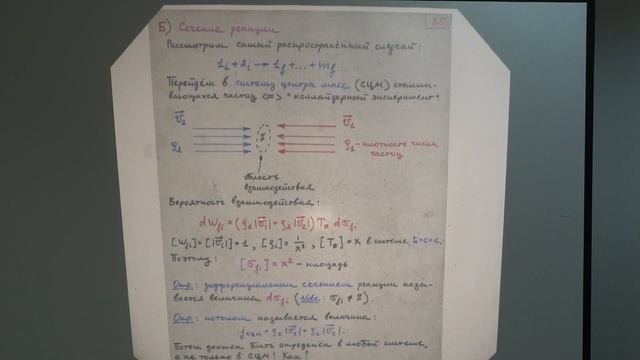 55
Б) Сечение реакции
Рассмотрим самый распространённый случай:
1i + 2i → 1f + ... + mf
Перейдём в систему центра масс (СЦМ) сталки-
вающихся частиц <=> "коллайдерный эксперимент":
v⃗2 S v⃗1
ρ2 ρ1 - плотность числа
частиц
область
взаимодействия
Вероятность взаимодействия:
dWfi = (ρ1|v⃗1| + ρ2|v⃗2|) T0 dσfi
[Wfi] = [|v⃗i|] = 1, [ρi] = 1/x³, [T0] = x в системе ħ=c=1.
Поэтому: [σfi] = x² - площадь.
Опр: дифференциальным сечением реакции назы-
вается величина dσfi (: σfi ≠ S).
Опр: потоком называется величина:
jсцм = ρ1|v⃗1| + ρ2|v⃗2|.
Поток должен быть определён в любой системе,
а не только в СЦМ! Как?